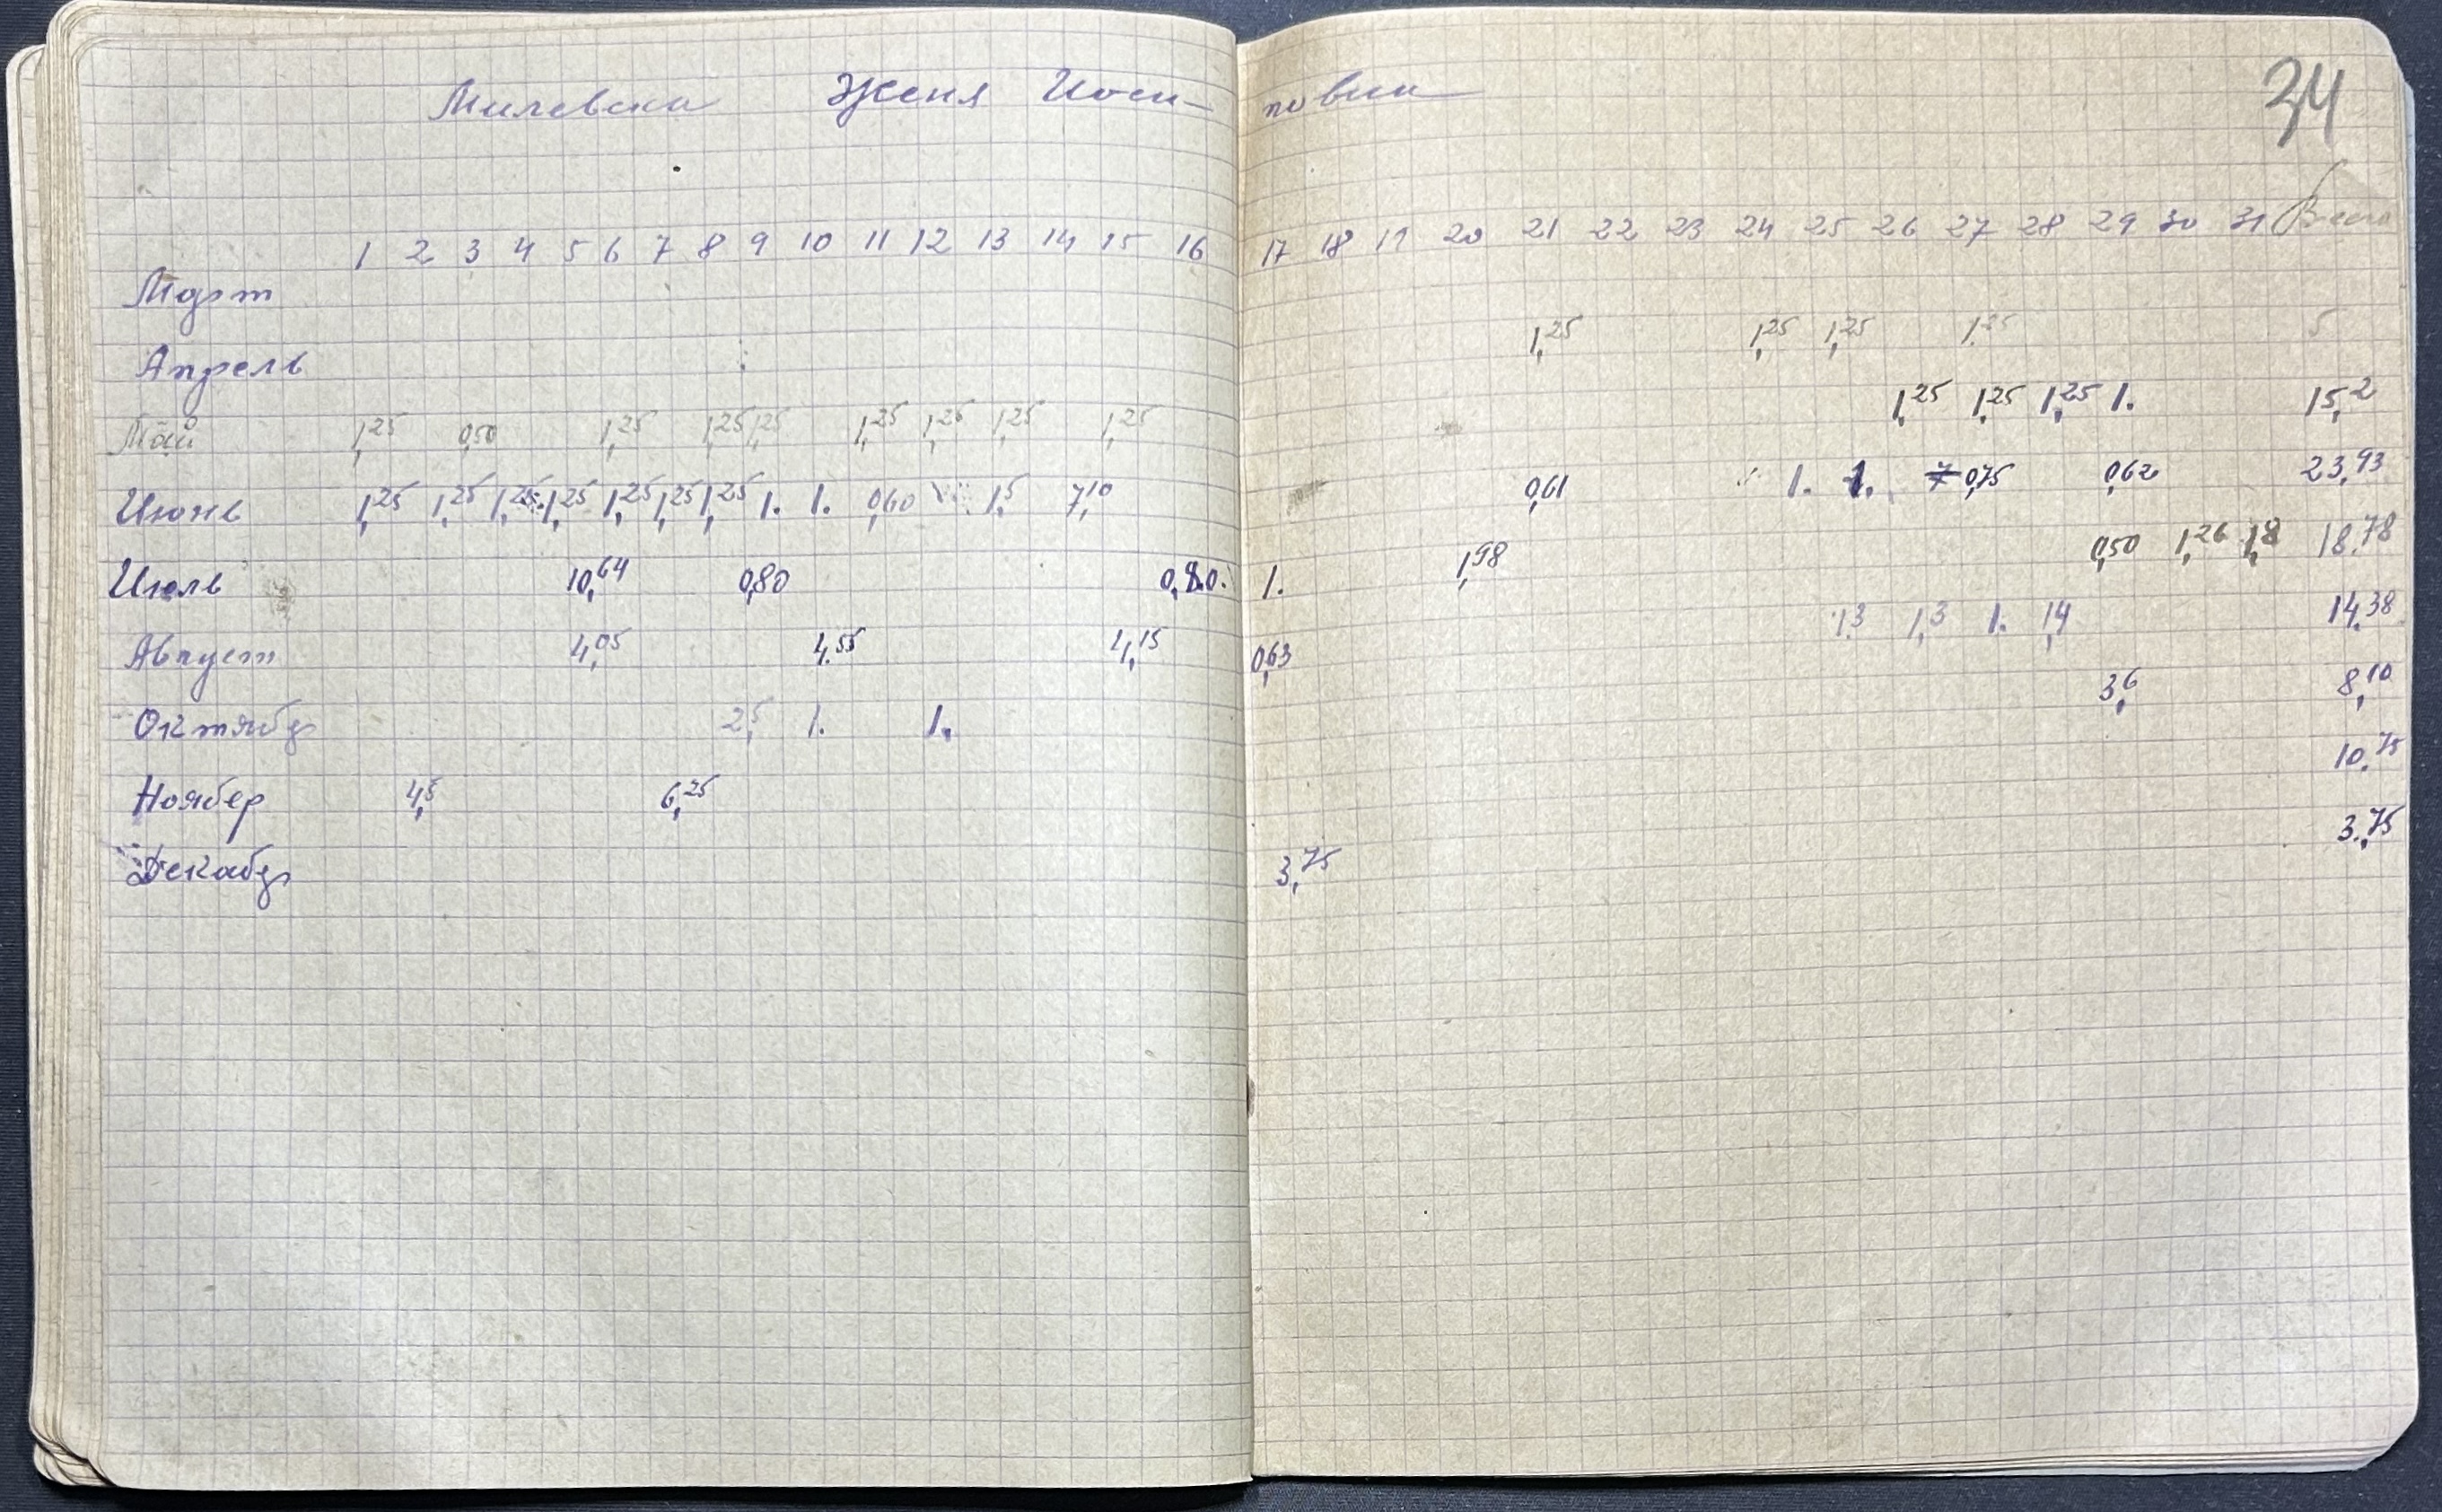 34
Милевска Женя Иоси- повна
1 2 3 4 5 6 7 8 9 10 11 12 13 14 15 16 17 18 19 20 21 22 23 24 25 26 27 28 29 30 31 Всего
Март
Апрель 1,25 1,25 1,25 1,25 5
Май 1,25 0,50 1,25 1,25 1,25 1,25 1,26 1,25 1,25 1,25 1,25 1,25 1. 15,2
Июнь 1,25 1,25 1,25 1,25 1,25 1,25 1,25 1. 1. 0,60 1,5 7,10 0,61 1. 1. 0,75 0,62 23,93
Июль 10,64 0,80 0,80. 1. 1,98 0,50 1,26 1,8 18,78
Август 4,05 4,55 4,15 0,63 1,3 1,3 1. 1,4 14,38
Октябр 2,5 1. 1. 3,6 8,10
Ноябер 4,5 6,25 10,75
Декабр 3,75 3,75